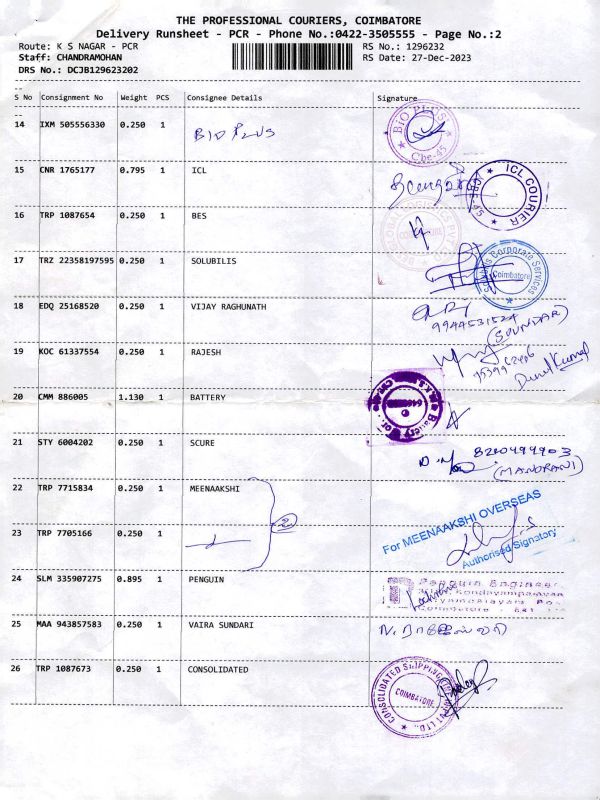 THE PROFESSIONAL COURIERS, COIMBATORE
Delivery Runsheet - PCR - Phone No.:0422-3505555 - Page No.:2
Route: K S NAGAR - PCR RS No.: 1296232
Staff: CHANDRAMOHAN RS Date: 27-Dec-2023
DRS No.: DCJB129623202
S No Consignment No Weight PCS Consignee Details Signature
14 IXM 505556330 0.250 1 BIO PLUS
BIO PLUS
Cbe-45
15 CNR 1765177 0.795 1 ICL
ICL COURIER
16 TRP 1087654 0.250 1 BES
17 TRZ 22358197595 0.250 1 SOLUBILIS
Corporate Services
Coimbatore
18 EDQ 25168520 0.250 1 VIJAY RAGHUNATH
9944531524
(SOUNDAR)
19 KOC 61337554 0.250 1 RAJESH
20 CMM 886005 1.130 1 BATTERY
Battery
21 STY 6004202 0.250 1 SCURE
8200499903
22 TRP 7715834 0.250 1 MEENAAKSHI
2
For MEENAAKSHI OVERSEAS
23 TRP 7705166 0.250 1
Authorised Signatory
24 SLM 335907275 0.895 1 PENGUIN
Penguin Engineer
25 MAA 943857583 0.250 1 VAIRA SUNDARI
26 TRP 1087673 0.250 1 CONSOLIDATED
CONSOLIDATED SHIPPING
COIMBATORE